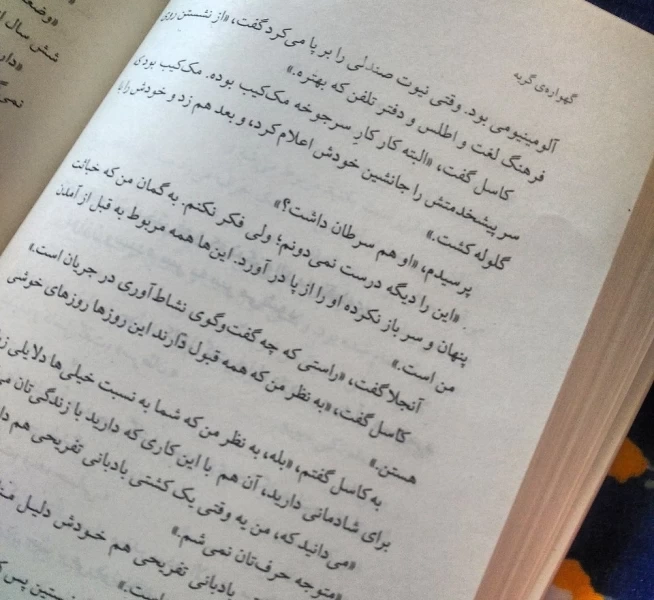 گهواره‌ی گربه
آلومینیومی بود. وقتی نبوت صندلی را بر پا می‌کرد گفت، «از نشستن روی
فرهنگ لغت و اطلس و دفتر تلفن که بهتره.»
کاسل گفت، «البته کار کارِ سرجوخه مک‌کیب بوده. مک‌کیب بود‌ی
سر پیشخدمتش را جانشین خودش اعلام کرد، و بعد هم زد و خودش را با
گلوله کشت.»
پرسیدم، «او هم سرطان داشت؟»
«این را دیگه درست نمی‌دونم؛ ولی فکر نکنم. به گمان من که خباثت
پنهان و سر باز نکرده او را از پا در آورد. این‌ها همه مربوط به قبل از آمدن
من است.»
آنجلا گفت، «راستی که چه گفت‌وگوی نشاط‌آوری در جریان است.»
کاسل گفت، «به نظر من که همه قبول دارند این روزها روزهای خوشی
هستن.»
به کاسل گفتم، «بله، به نظر من که شما به نسبت خیلی‌ها دلایلی
برای شادمانی دارید، آن هم با این کاری که دارید با زندگی‌تان
«می‌دانید که، من یه وقتی یک کشتی بادبانی تفریحی هم
«متوجه حرف‌تان نمی‌شم.»
بادبانی تفریحی هم خودش دلیل
است.»
نخستین پس
«وضعی
شش سال
«دار
نمی